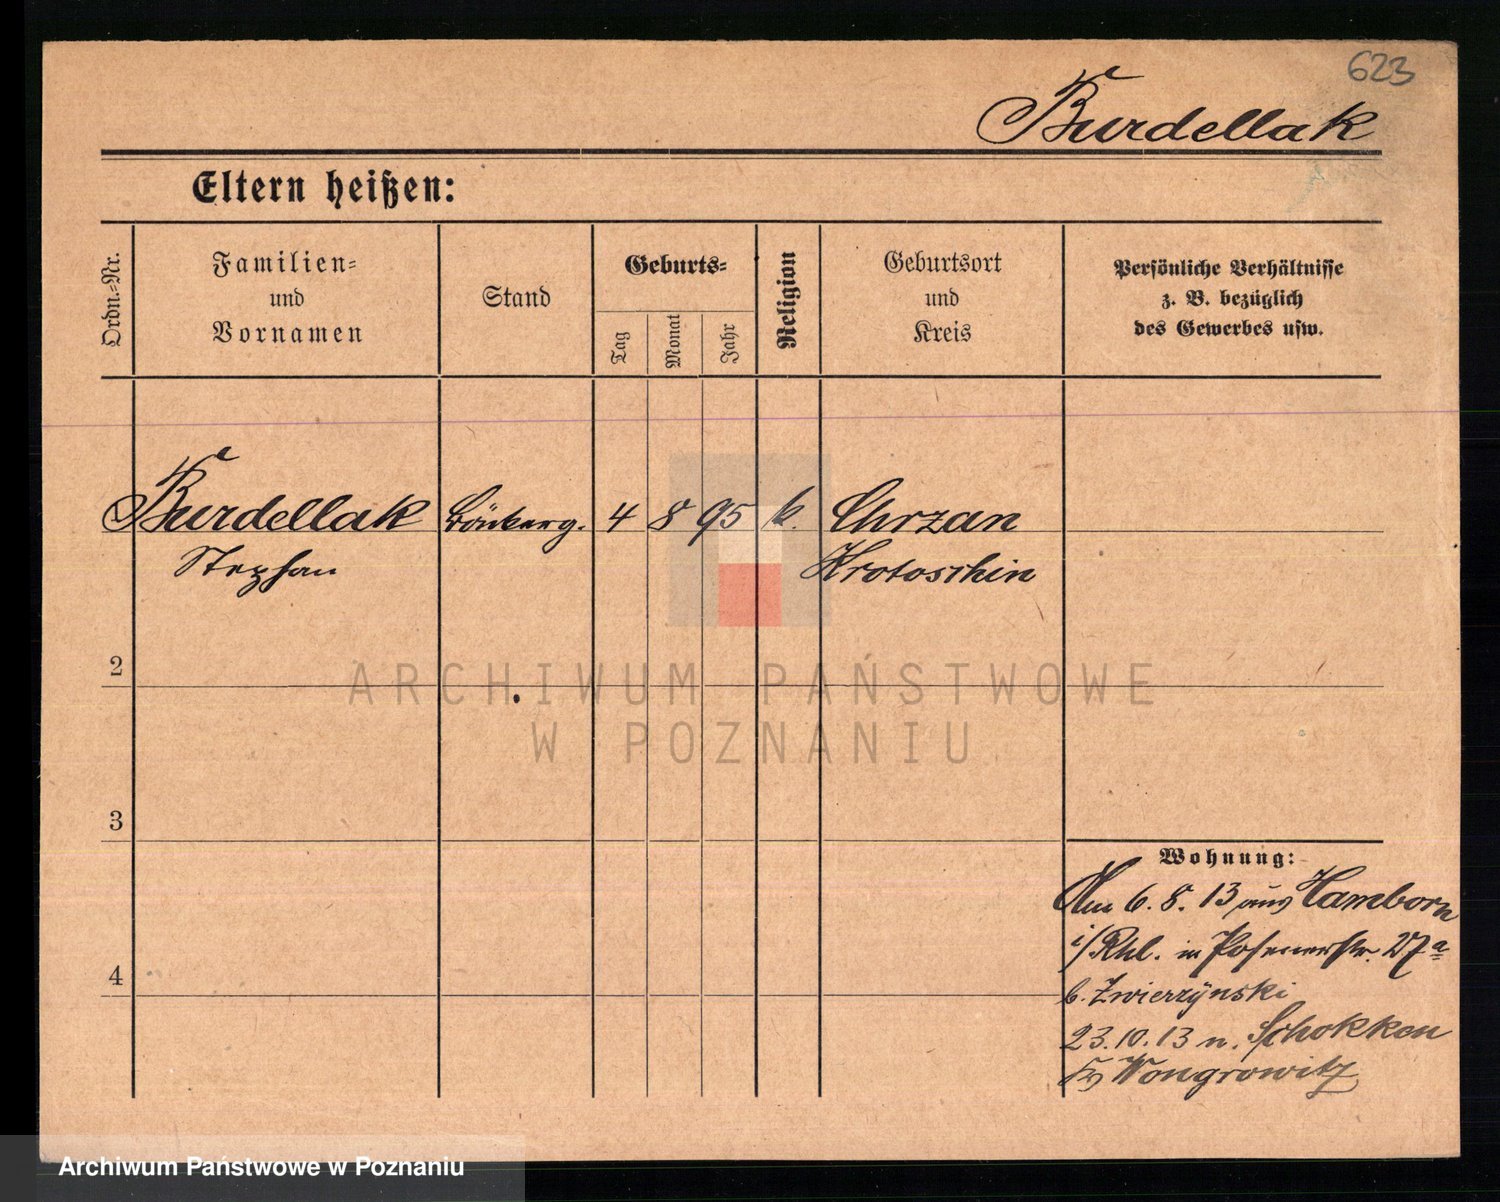 623
Burdellak
Eltern heißen:
Ordn.-Nr.
Familien-
und
Vornamen
Stand
Geburts-
Tag
Monat
Jahr
Religion
Geburtsort
und
Kreis
Persönliche Verhältnisse
z. B. bezüglich
des Gewerbes usw.
Burdellak 4 8 95 k. Chrzan
Stephan Krotoschin
2
ARCHIWUM PAŃSTWOWE
W POZNANIU
3
Wohnung:
Am 6. 8. 13 aus Hamborn
i/Rhl. in Posenerstr. 27a
b. Zwierzÿnski
4
23.10.13 n. Schokken
Kr Wongrowitz
Archiwum Państwowe w Poznaniu